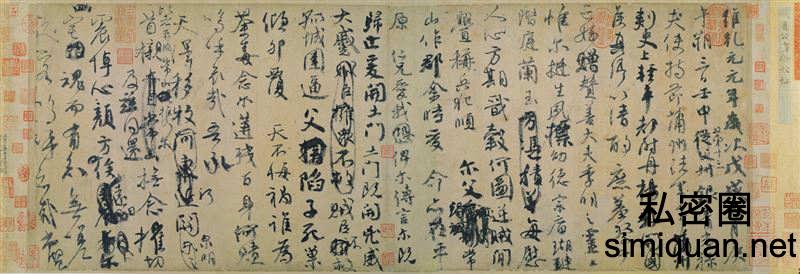 維乾元元年歲次戊戌九月庚
午朔三日壬申從父第十三叔銀青光祿
夫使持節蒲州諸軍事蒲州
刺史上輕車都尉丹楊縣開國
侯真卿以清酌庶羞祭于
亡姪贈贊善大夫季明之靈
惟爾挺生夙標幼德宗廟瑚璉
階庭蘭玉方憑積善每慰
人心方期戩穀何圖逆賊閒
釁稱兵犯順爾父竭誠常
山作郡余時受命亦在平
原仁兄愛我俾爾傳言爾既
歸止爰開土門土門既開凶威
大蹙賊臣擁眾不救
孤城圍逼父陷子死巢
傾卵覆天不悔禍誰為
荼毒念爾遘殘百身何贖
嗚乎哀哉吾承
天澤移牧河關泉明
首櫬及茲同還撫念摧切
震悼心顏方俟遠日
幽宅魂而有知無嗟
久客嗚呼哀哉尚饗
私密圈
simiquan.net